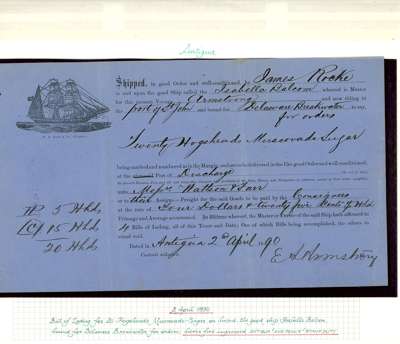 Antigua
Shipped, in good Order and well-conditioned, by James Roche
in and upon the good Ship called the Isabella Balcom whereof is Master
for this present Voyage Armstrong and now riding in
the port of St John and bound for Delaware Breakwater
for orders
Twenty Hogsheads Muscovado Sugar
being marked and numbered as in the Margin, and are to be delivered in the like good Order and well-conditioned,
at the Port of Discharge
unto Messrs
or their Assigns—Freight for the said Goods to be paid by the Consignees
at the rate of Four Dollars & twenty five Cents
Primage and Average accustomed. In Witness whereof, the Master or Purser of the said Ship hath affirmed to
4 Bills of Lading, all of this Tenor and Date; One of which Bills being accomplished, the others to
stand void.
Dated in Antigua 2d April 90
E A Armstrong
5 Hhds
15 Hhds
20 Hhds
2 April 1890
Bill of Lading for 20 Hogsheads Muscovado Sugar on board the good ship Isabella Balcom
bound for Delaware Breakwater for orders.